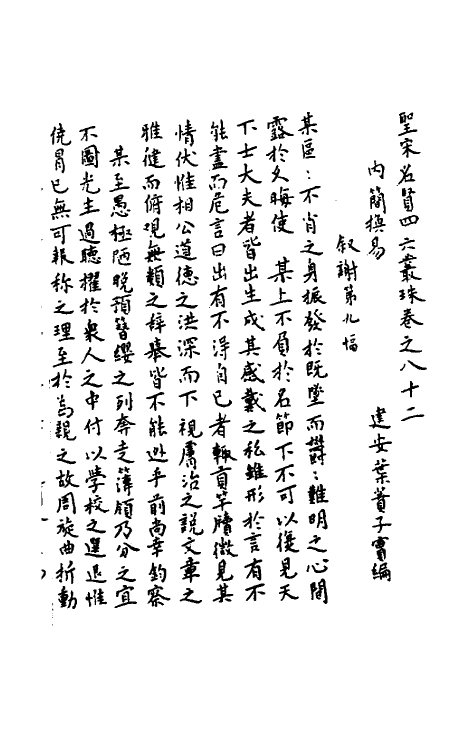 聖宋名賢四六叢珠卷之八十二
建安葉蕡子實編
內簡換易
叙謝第九幅
某區：不肖之身振發於既墜而欝：難明之心開
露於久晦使 某上不負於名節下不可以復見天
下士大夫者皆出生成其感戴之私雖形於言有不
能盡而危言曰出有不得自已者輙貢竿牘微見其
情伏惟相公道德之洪深而下視膚治之説文章之
雅健而俯視無類之辞摹皆不能逃乎前尚幸鈞察
某至愚極陋晚預簪纓之列奔走簿領乃分之宜
不圖光主過聴擢於衆人之中付以學校之選退惟
僥冒已無可報称之理至於為親之故周旋曲折動